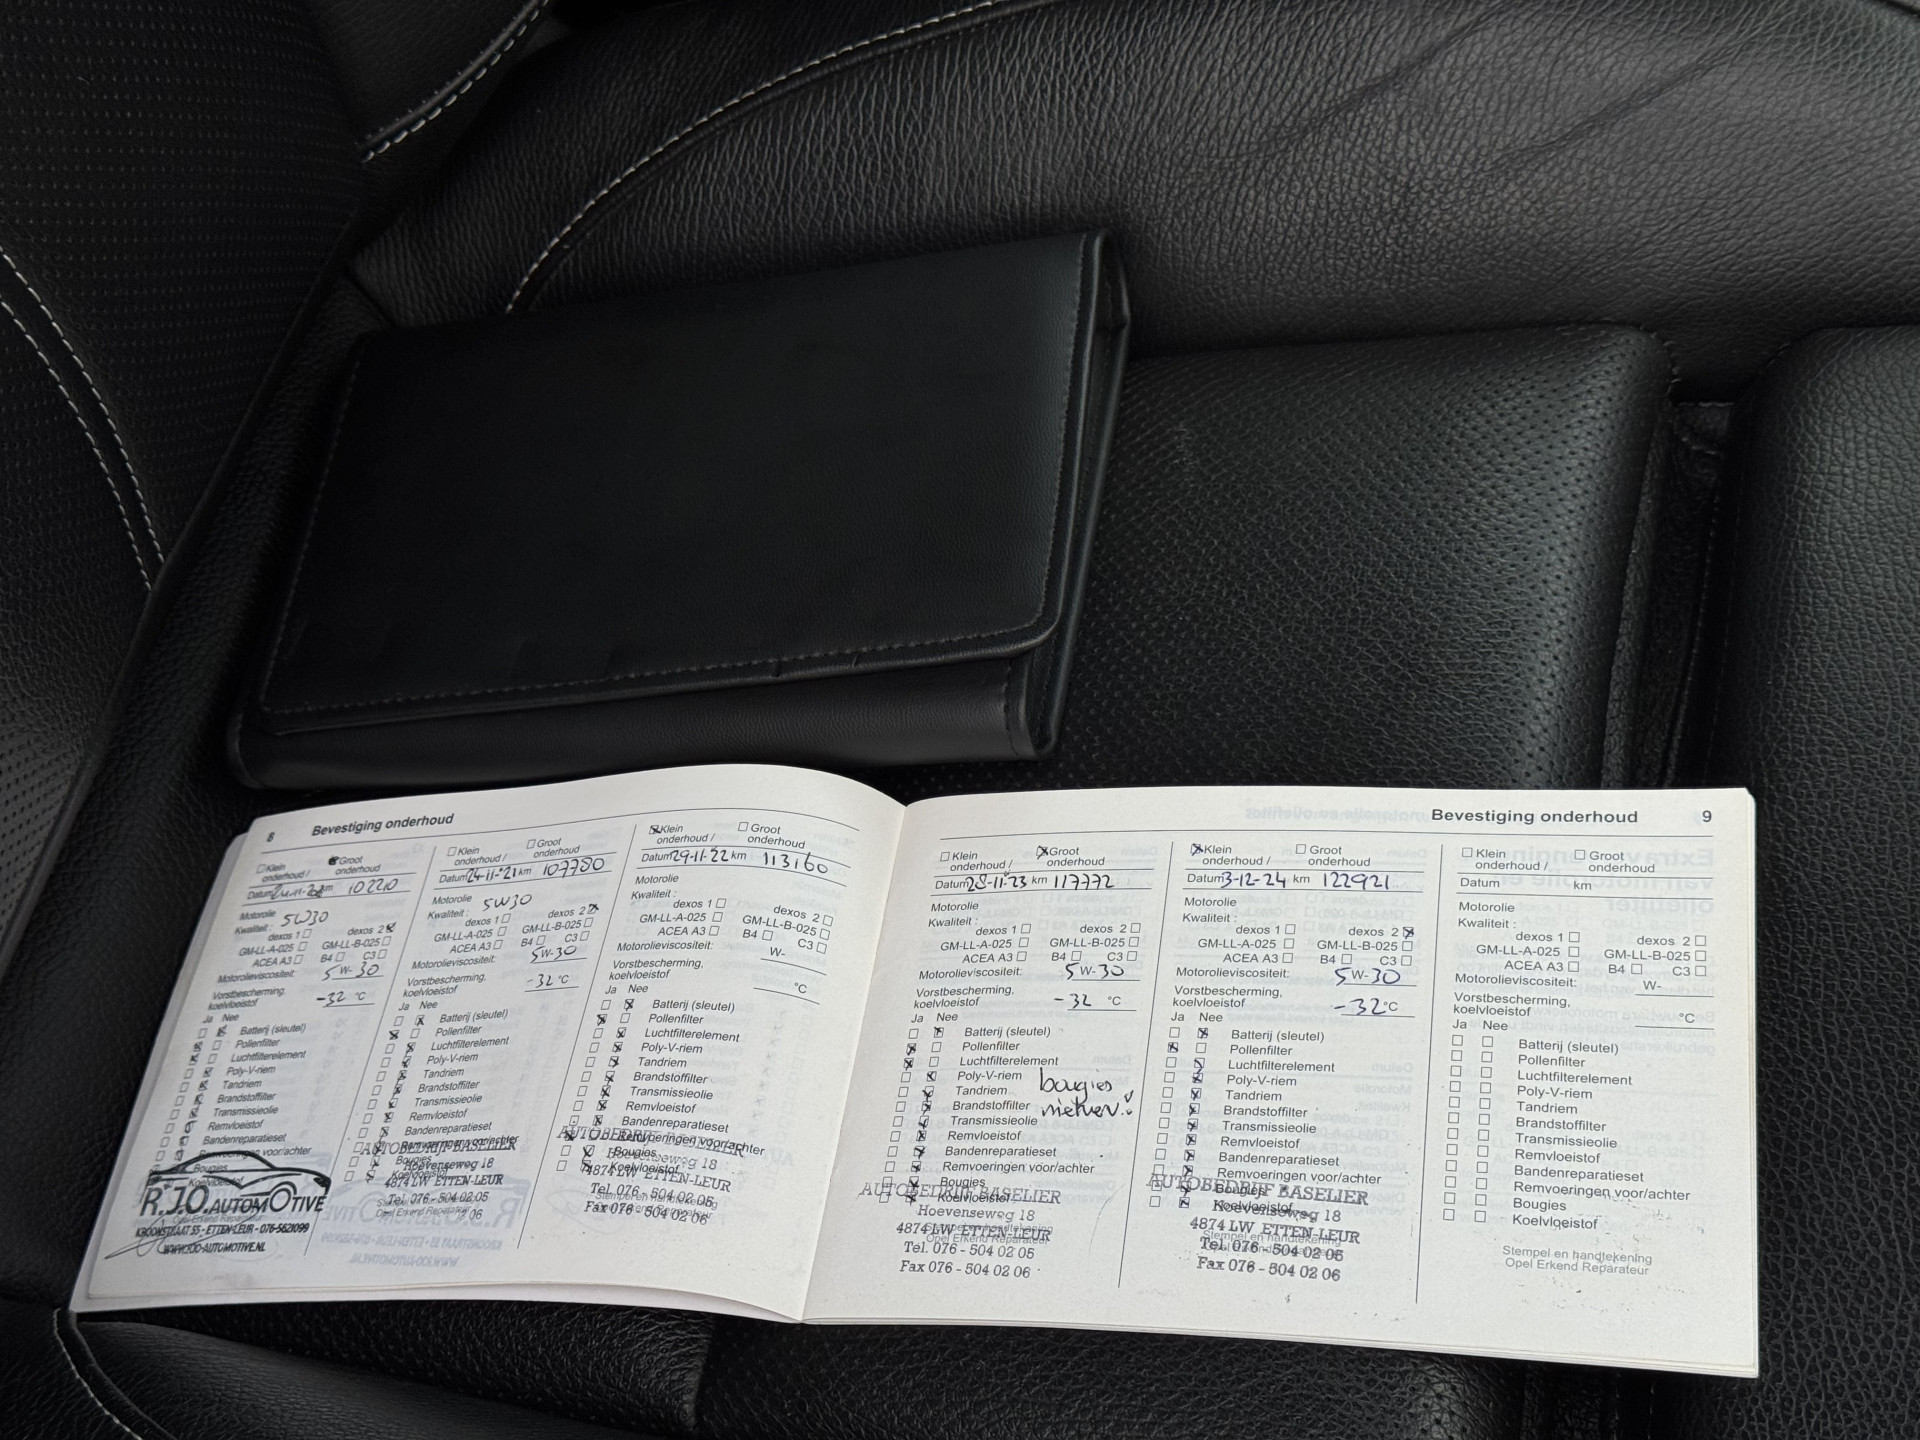 8 Bevestiging onderhoud
Klein
onderhoud /
Groot
onderhoud
Datum km 102210
Motorolie
5W30
Kwaliteit :
dexos 1 dexos 2
GM-LL-A-025 GM-LL-B-025
ACEA A3 B4 C3
Motorolieviscositeit:
5 W- 30
Vorstbescherming,
koelvloeistof
-32 °C
Ja Nee
Batterij (sleutel)
Pollenfilter
Luchtfilterelement
Poly-V-riem
Tandriem
Brandstoffilter
Transmissieolie
Remvloeistof
Bandenreparatieset
Remvoeringen voor/achter
Bougies
Koelvloeistof
R.J.O. AUTOMOTIVE
KROONSTRAAT 55 - ETTEN-LEUR - 076-5621099
WWW.RJO-AUTOMOTIVE.NL
Klein
onderhoud /
Groot
onderhoud
Datum 24-11-'21 km 107780
Motorolie
5W30
Kwaliteit :
dexos 1 dexos 2
GM-LL-A-025 GM-LL-B-025
ACEA A3 B4 C3
Motorolieviscositeit:
5W-30
Vorstbescherming,
koelvloeistof
-32 °C
Ja Nee
Batterij (sleutel)
Pollenfilter
Luchtfilterelement
Poly-V-riem
Tandriem
Brandstoffilter
Transmissieolie
Remvloeistof
Bandenreparatieset
Remvoeringen voor/achter
Bougies
Koelvloeistof
AUTOBEDRIJF BASELIER
Hoevenseweg 18
4874 LW ETTEN-LEUR
Tel. 076 - 504 02 05
Klein
onderhoud /
Groot
onderhoud
Datum 29-11-22 km 113160
Motorolie
Kwaliteit :
dexos 1 dexos 2
GM-LL-A-025 GM-LL-B-025
ACEA A3 B4 C3
Motorolieviscositeit:
W-
Vorstbescherming,
koelvloeistof
°C
Ja Nee
Batterij (sleutel)
Pollenfilter
Luchtfilterelement
Poly-V-riem
Tandriem
Brandstoffilter
Transmissieolie
Remvloeistof
Bandenreparatieset
Remvoeringen voor/achter
Bougies
Koelvloeistof
AUTOBEDRIJF BASELIER
Hoevenseweg 18
4874 LW ETTEN-LEUR
Tel. 076 - 504 02 05
Fax 076 - 504 02 06
Bevestiging onderhoud 9
Klein
onderhoud /
Groot
onderhoud
Datum 28-11-23 km 117772
Motorolie
Kwaliteit :
dexos 1 dexos 2
GM-LL-A-025 GM-LL-B-025
ACEA A3 B4 C3
Motorolieviscositeit:
5 W- 30
Vorstbescherming,
koelvloeistof
-32 °C
Ja Nee
Batterij (sleutel)
Pollenfilter
Luchtfilterelement
Poly-V-riem
Tandriem
Brandstoffilter
Transmissieolie
Remvloeistof
Bandenreparatieset
Remvoeringen voor/achter
Bougies
Koelvloeistof
bougies
AUTOBEDRIJF BASELIER
Hoevenseweg 18
4874 LW ETTEN-LEUR
Tel. 076 - 504 02 05
Fax 076 - 504 02 06
Klein
onderhoud /
Groot
onderhoud
Datum 3-12-24 km 122921
Motorolie
Kwaliteit :
dexos 1 dexos 2
GM-LL-A-025 GM-LL-B-025
ACEA A3 B4 C3
Motorolieviscositeit:
5 W- 30
Vorstbescherming,
koelvloeistof
-32 °C
Ja Nee
Batterij (sleutel)
Pollenfilter
Luchtfilterelement
Poly-V-riem
Tandriem
Brandstoffilter
Transmissieolie
Remvloeistof
Bandenreparatieset
Remvoeringen voor/achter
Bougies
Koelvloeistof
AUTOBEDRIJF BASELIER
Hoevenseweg 18
4874 LW ETTEN-LEUR
Tel. 076 - 504 02 05
Fax 076 - 504 02 06
Klein
onderhoud /
Groot
onderhoud
Datum km
Motorolie
Kwaliteit :
dexos 1 dexos 2
GM-LL-A-025 GM-LL-B-025
ACEA A3 B4 C3
Motorolieviscositeit:
W-
Vorstbescherming,
koelvloeistof
°C
Ja Nee
Batterij (sleutel)
Pollenfilter
Luchtfilterelement
Poly-V-riem
Tandriem
Brandstoffilter
Transmissieolie
Remvloeistof
Bandenreparatieset
Remvoeringen voor/achter
Bougies
Koelvloeistof
Stempel en handtekening
Opel Erkend Reparateur